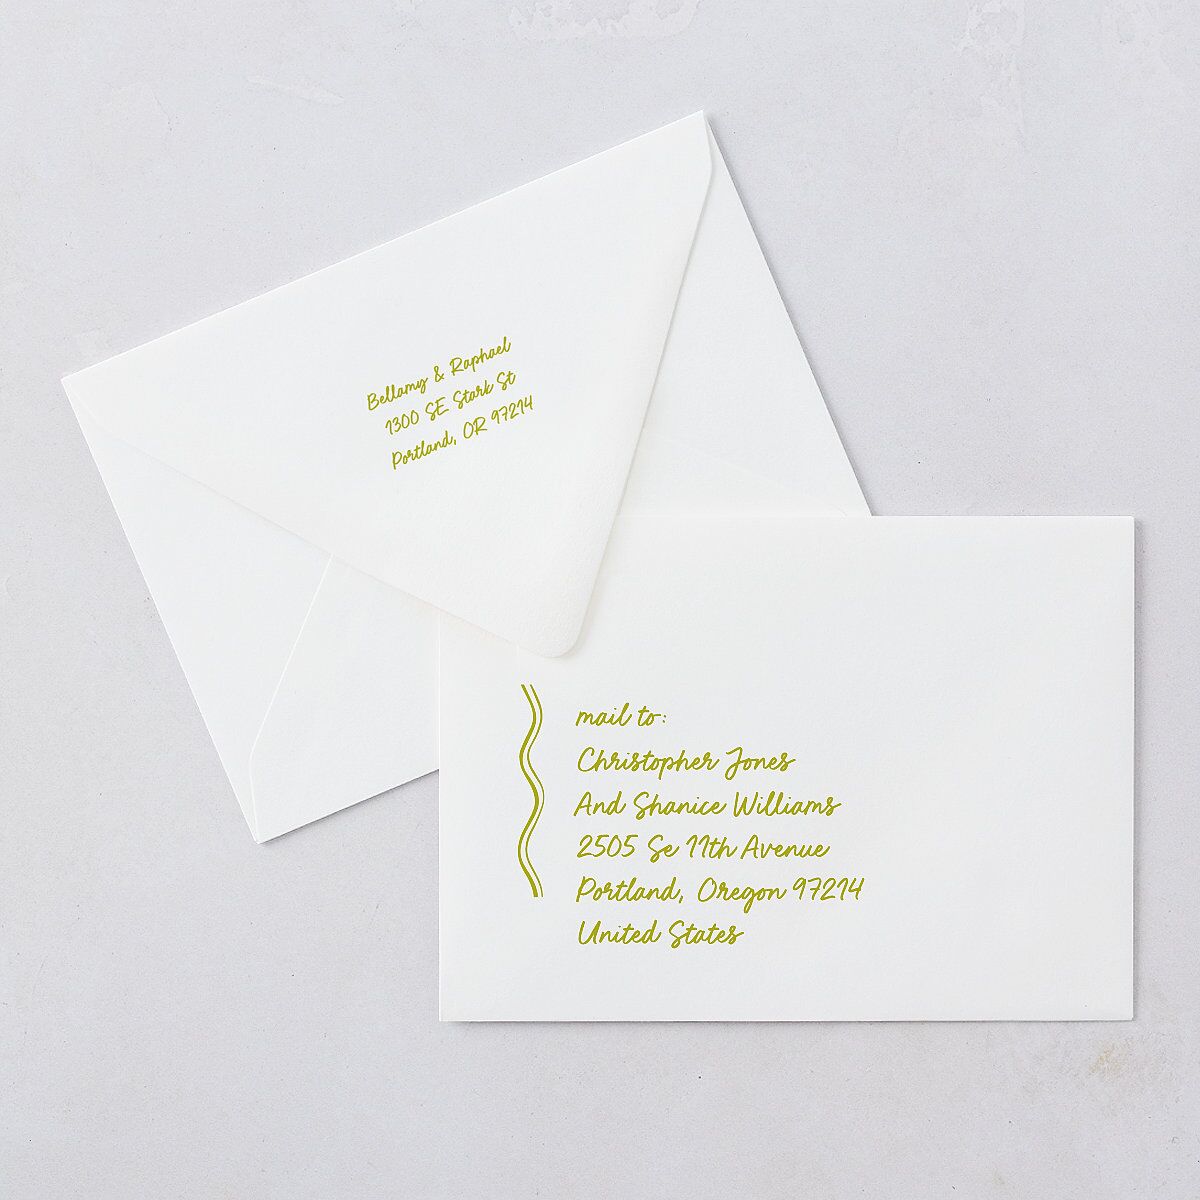 Bellamy & Raphael
1300 SE Stark St
Portland, OR 97214
mail to:
Christopher Jones
And Shanice Williams
2505 Se 11th Avenue
Portland, Oregon 97214
United States